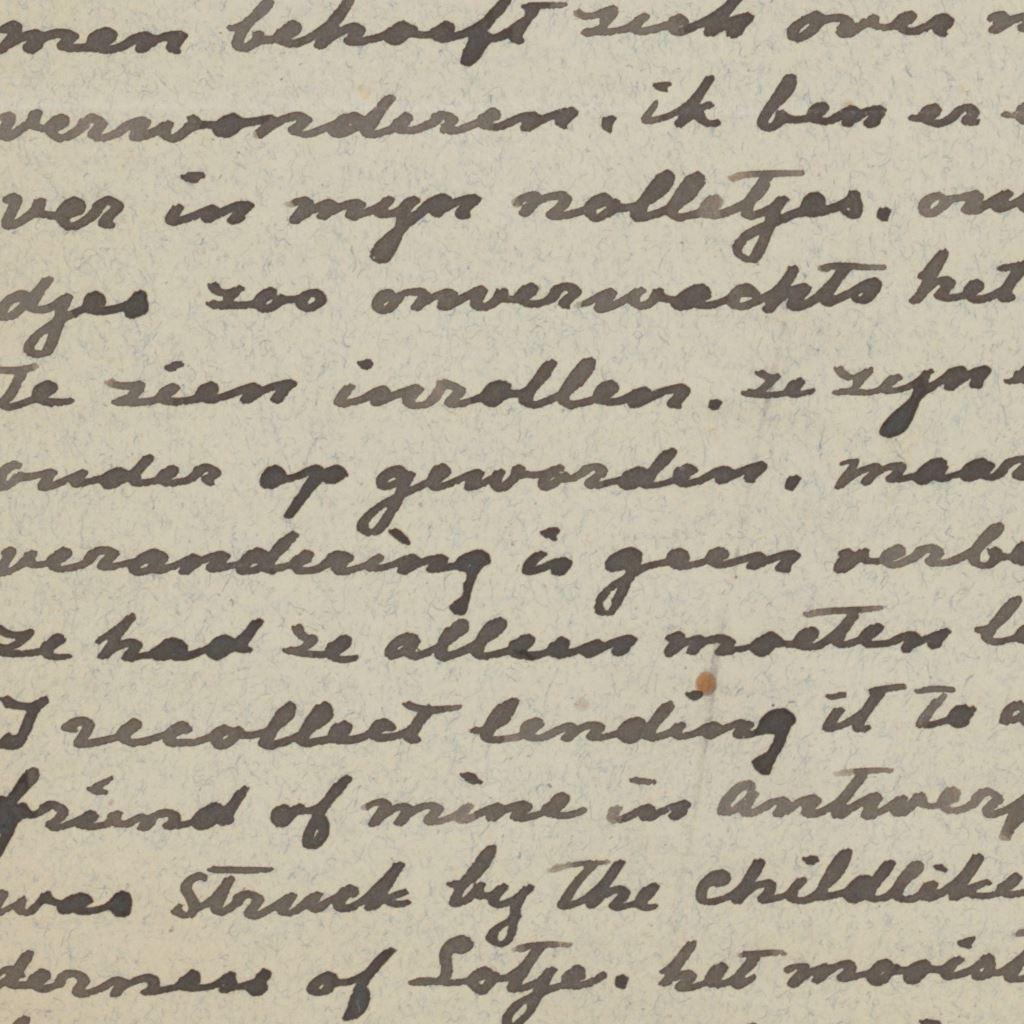 men behoeft zich over
verwonderen. ik ben er
ver in myn nolletjes. om
djes zoo onverwachts het
te zien inrollen. ze zyn
ouder op geworden. maar
verandering is geen verbe
ze had ze alleen moeten le
I recollect lending it to a
friend of mine in Antwerp
was struck by the childlike
derness of Lotje. het mooist